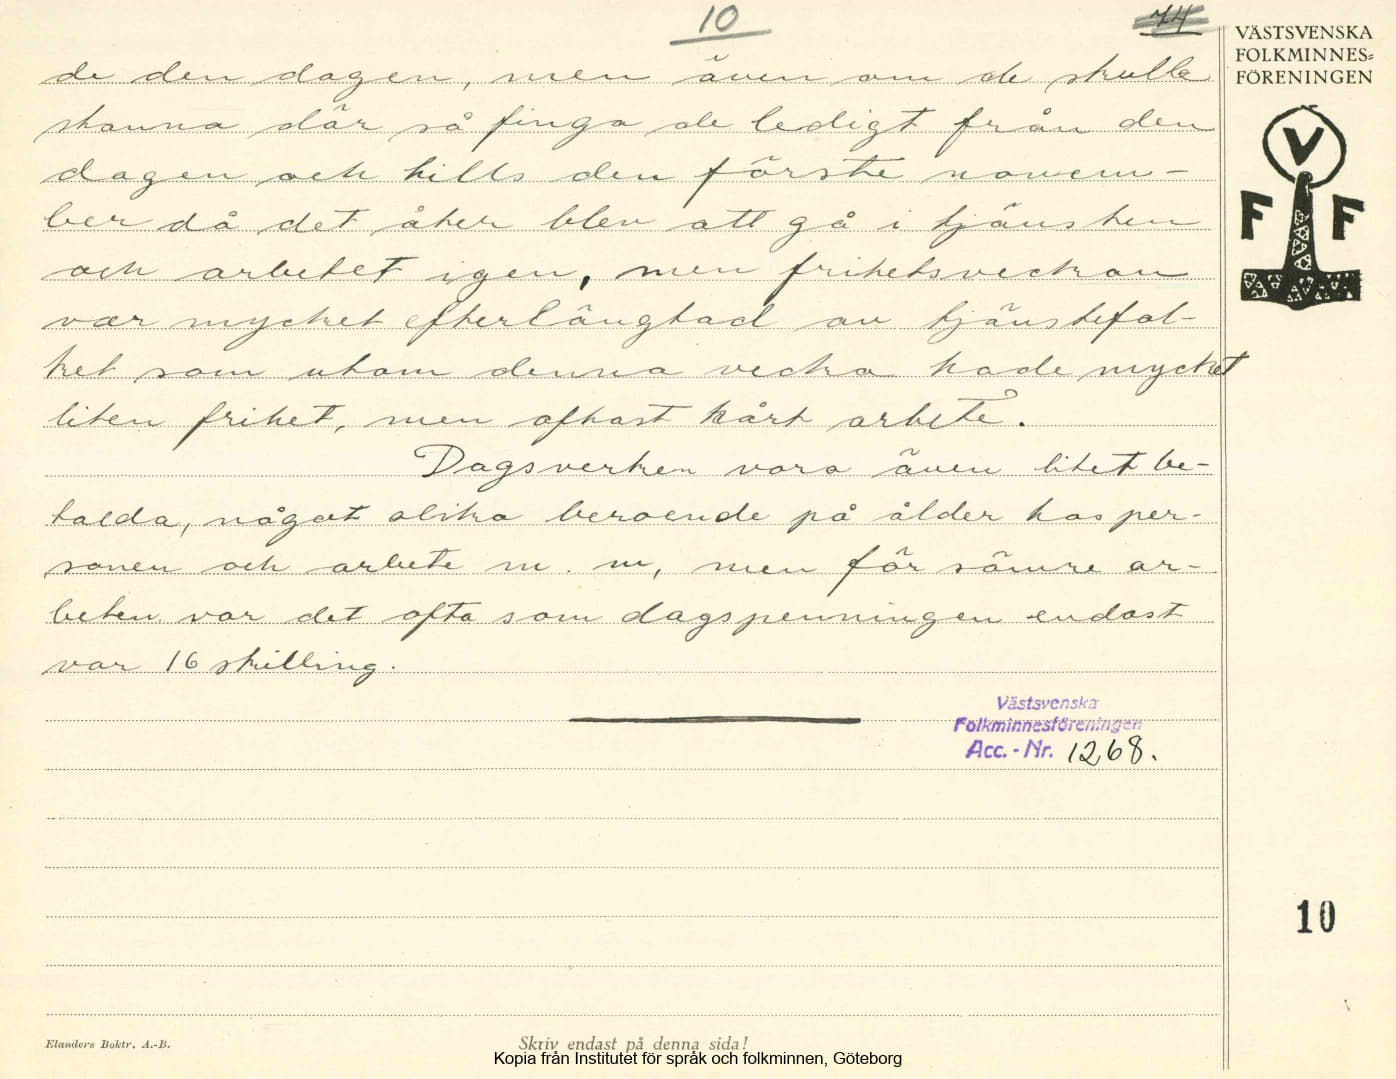 10
74
VÄSTSVENSKA
FOLKMINNES=
FÖRENINGEN
V
F F
de den dagen, men även om de skulle
stanna där så finga de ledigt från den
dagen och tills den förste novem-
ber då det åter blev att gå i tjänsten
och arbetet igen, men frihetsveckan
var mycket efterlängtad av tjänstefol-
ket som utom denna vecka hade mycket
liten frihet, men oftast hårt arbete.
Dagsverken voro även litet be-
talda, något olika beroende på ålder hos per-
sonen och arbete m. m, men för sämre ar-
beten var det ofta som dagspenningen endast
var 16 skilling.
Västsvenska
Folkminnesföreningen
Acc.-Nr. 1268.
10
Elanders Boktr. A.-B.
Skriv endast på denna sida!
Kopia från Institutet för språk och folkminnen, Göteborg